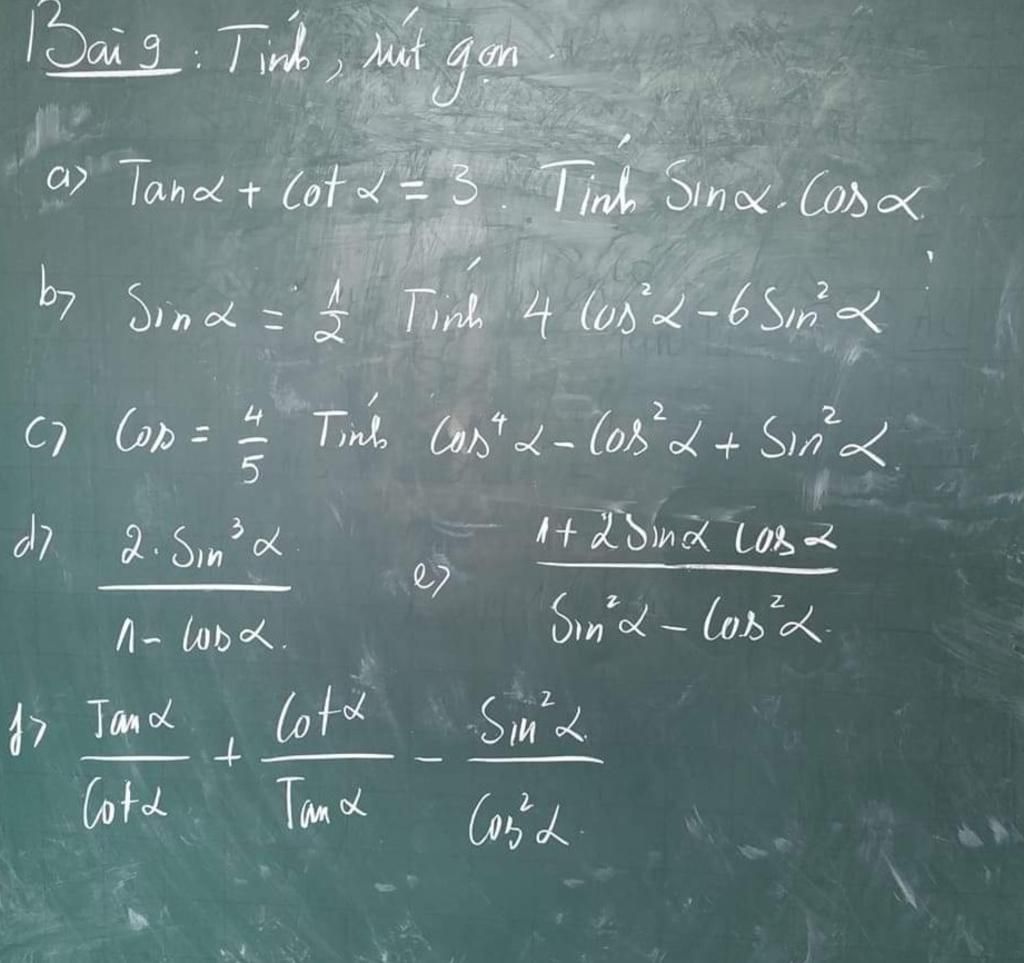 Bài 9 : Tính, rút gọn.
a) Tanα + Cot α = 3. Tính Sinα. Cosα.
b) Sinα = 1/2 Tính 4 Cos²α - 6 Sin²α
c) Cos = 4/5 Tính Cos⁴α - Cos²α + Sin²α.
d) 2. Sin³α / 1 - Cosα. e) 1 + 2 Sinα Cosα / Sin²α - Cos²α.
f) Tanα / Cotα + Cotα / Tanα - Sin²α / Cos²α.